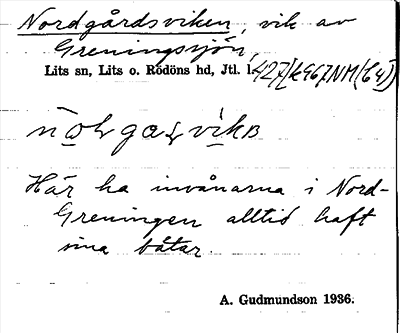 Nordgårdsviken, vik av
Greningssjön,
Lits sn, Lits o. Rödöns hd, Jtl. l.
Här ha invånarna i Nord-
Greningen alltid haft
sina båtar.
A. Gudmundson 1936.